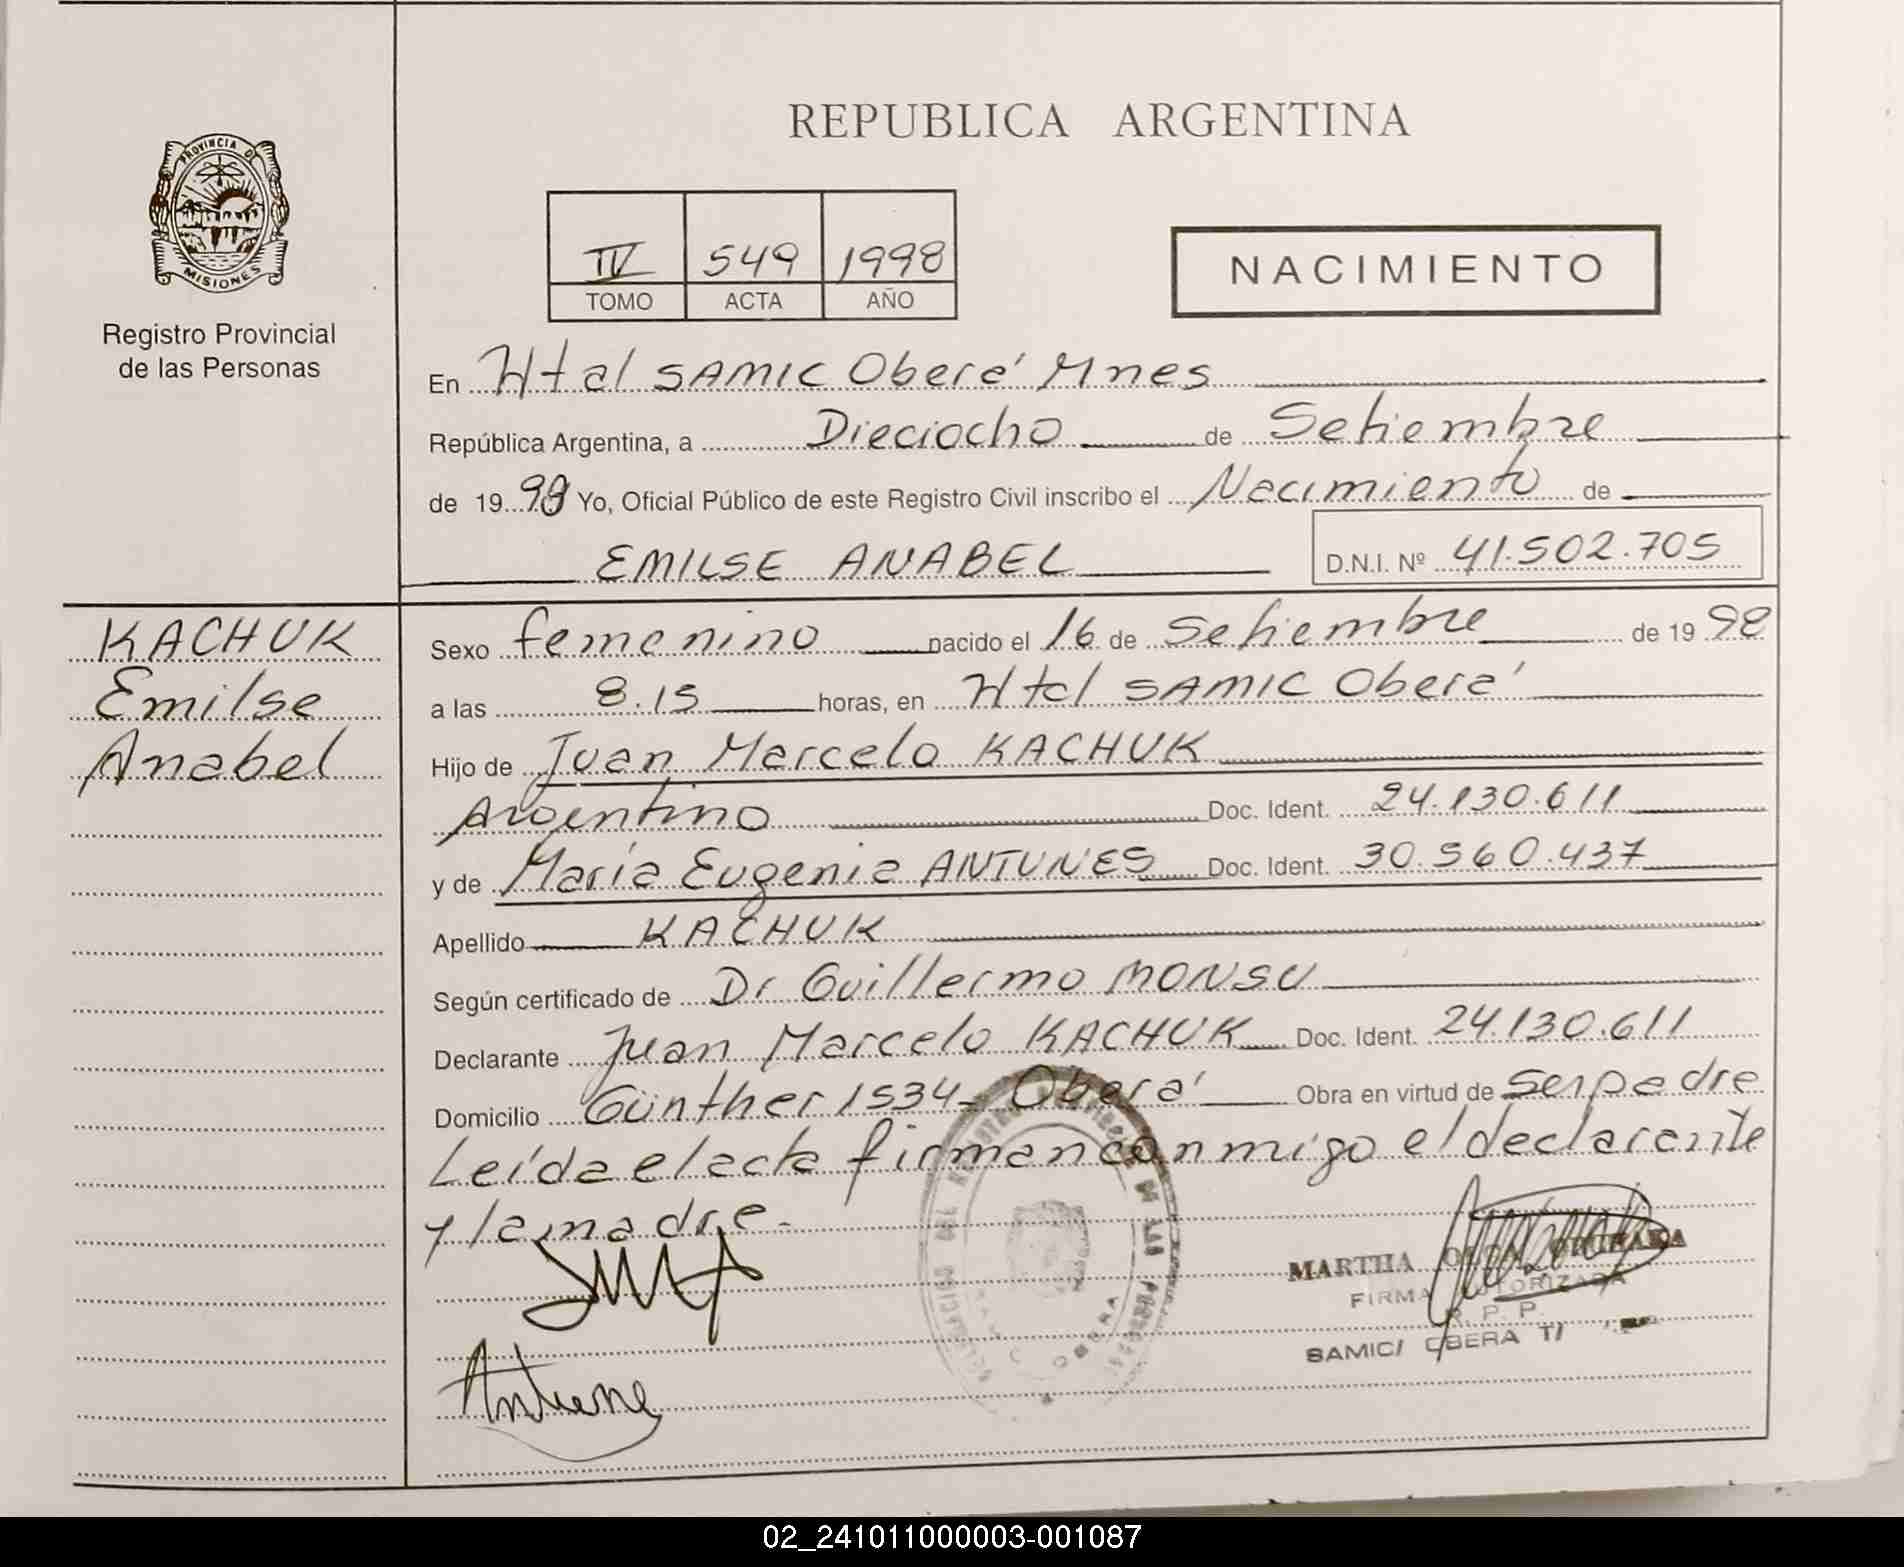 REPUBLICA ARGENTINA
PROVINCIA DE
MISIONES
Registro Provincial
de las Personas
IV 549 1998
TOMO ACTA AÑO
NACIMIENTO
En Htal SAMIC Oberá Mnes
República Argentina, a Dieciocho de Setiembre
de 1998 Yo, Oficial Público de este Registro Civil inscribo el Nacimiento de
EMILSE ANABEL D.N.I. Nº 41.502.705
KACHUK
Emilse
Anabel
Sexo femenino nacido el 16 de Setiembre de 1998
a las 8.15 horas, en Htal SAMIC Oberá
Hijo de Juan Marcelo KACHUK
Argentino Doc. Ident. 24.130.611
y de María Eugenia ANTUNES Doc. Ident. 30.560.437
Apellido KACHUK
Según certificado de Dr Guillermo MONSU
Declarante Juan Marcelo KACHUK Doc. Ident. 24.130.611
Domicilio Günther 1534- Oberá Obra en virtud de ser padre
Leída el acta firman conmigo el declarante
y la madre.-
MARTHA OLGA
FIRMA AUTORIZADA
R. P. P.
SAMIC/ OBERA T/
OBERA
02_241011000003-001087